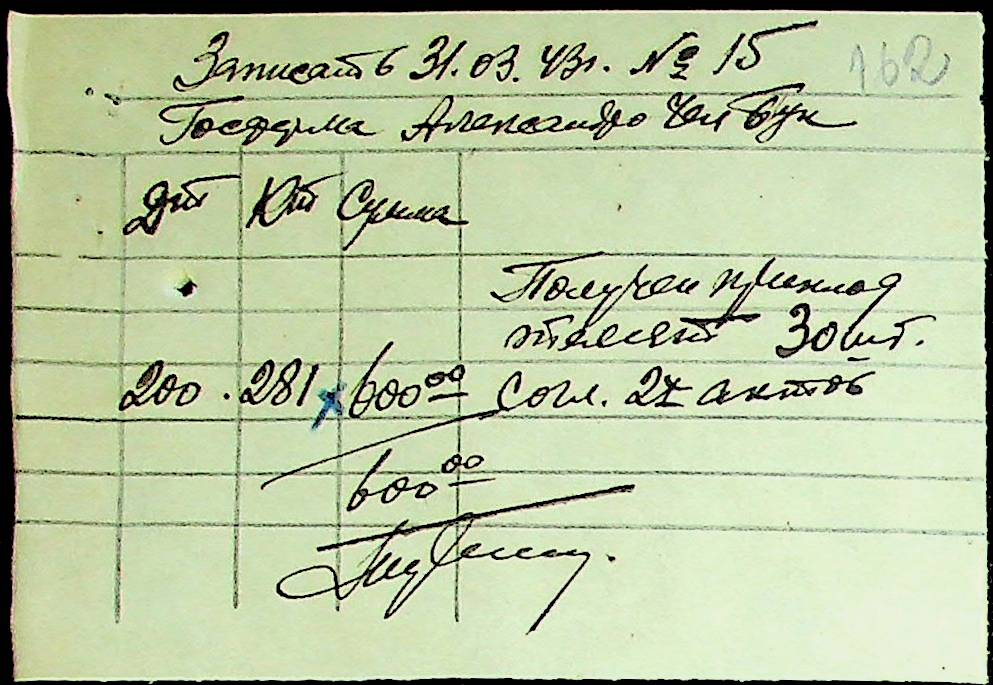 Записать 31.03.43г. № 15
162
Госферма Александро Чел бук
Дт Кт Сумма
Получен приплод
телят 30 шт.
200 . 281 х 600 00 согл. 2х актов
600 00